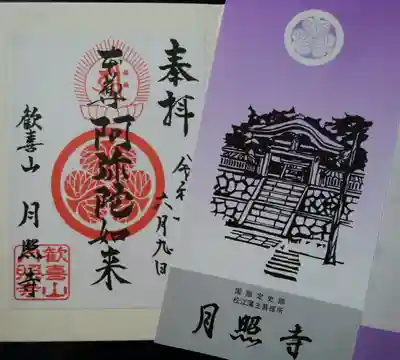 奉拝
令和
六月九日
本尊 阿弥陀如来
歓喜山 月照寺
歓喜山
月照寺
国指定史跡
松江藩主菩提所
月照寺